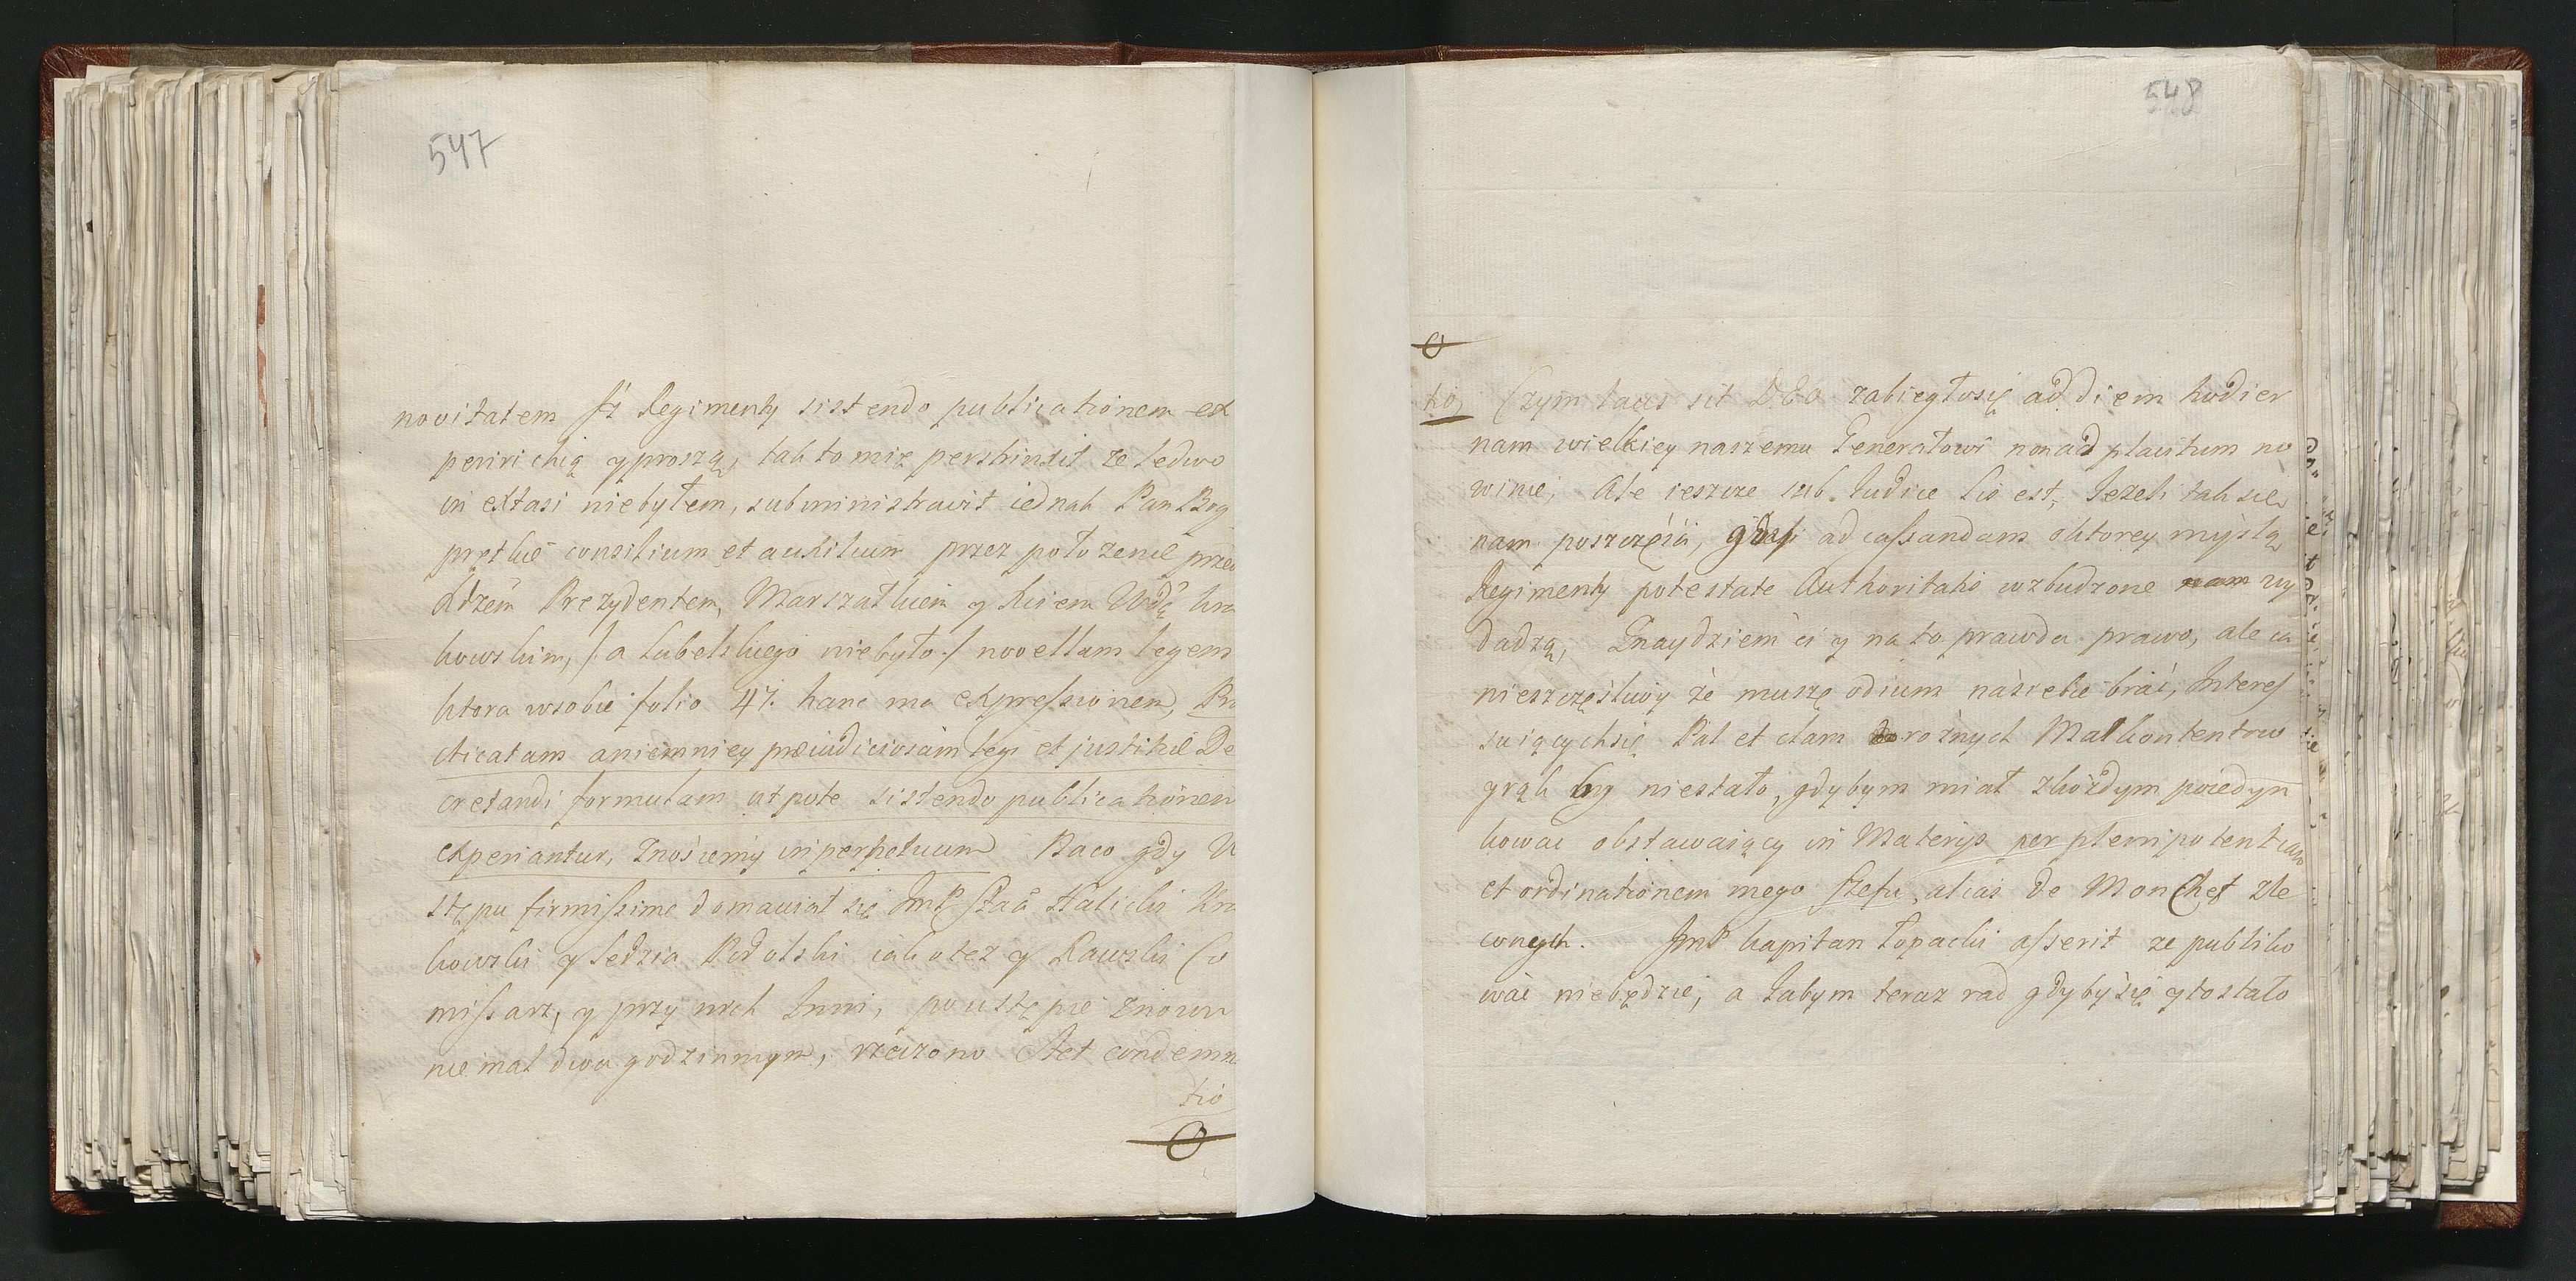 547
novitatem Jż Regimenty sistendo publicationem ex
periri chcą y proszą, tak to mię perstrinxit że ledwo
in extasi niebyłem, subministravit iednak Pan Bog
prętkie consilium et auxilium przez położenie przed
Xdzem Prezydentem, Marszałkiem y Kiiem Wdą kra
kowskim, /: a lubelskiego niebyło :/ novellam legem
ktora wsobie folio 47. hanc ma expressionem, Pra
cticatam aniemniey præiudiciosam legi et justitiæ De
cretandi formulam ut pote sistendo publicationem
experiantur, Znosiemy in perpetuum Baco gdy U
stępu firmissime domawiał się JmP Staa Halicki Kra
kowski y Sędzia Podolski iako też y Rawski Co
missarz, y przy nich Inni, po ustępie znowu
nie mal dwu godzinnym, rzeczono Stet condemna
tio
548
tio Czym laus sit DEO zabiegłosię ad diem hodier
nam wielkiey naszemu Generałowi non ad plausum no
winie, Ale ieszcze sub Judice lis est, Jeżeli tak się
nam poszczęści, gdy ad cassandam oktorey myślą
Regimenty potestate Authoritatis wzbudzone nam wy
dadzą, Znaydziem ci y na to prawda prawo, ale ia
nieszczęśliwy że muszę odium nasiebie brać, Interes
suiącychsię Pal et clam rożnych Malkontentow
grąk by niestało, gdybym miał zkożdym poiedyn
kować obstawaiący in Materijs per plenipotentiam
et ordinationem mego Szefa, alias de Mon Chef zle
conych. JmP kapitan Łopacki asserit ze publiko
wać niebędzie, a Jabym teraz rad gdybysię ytostało